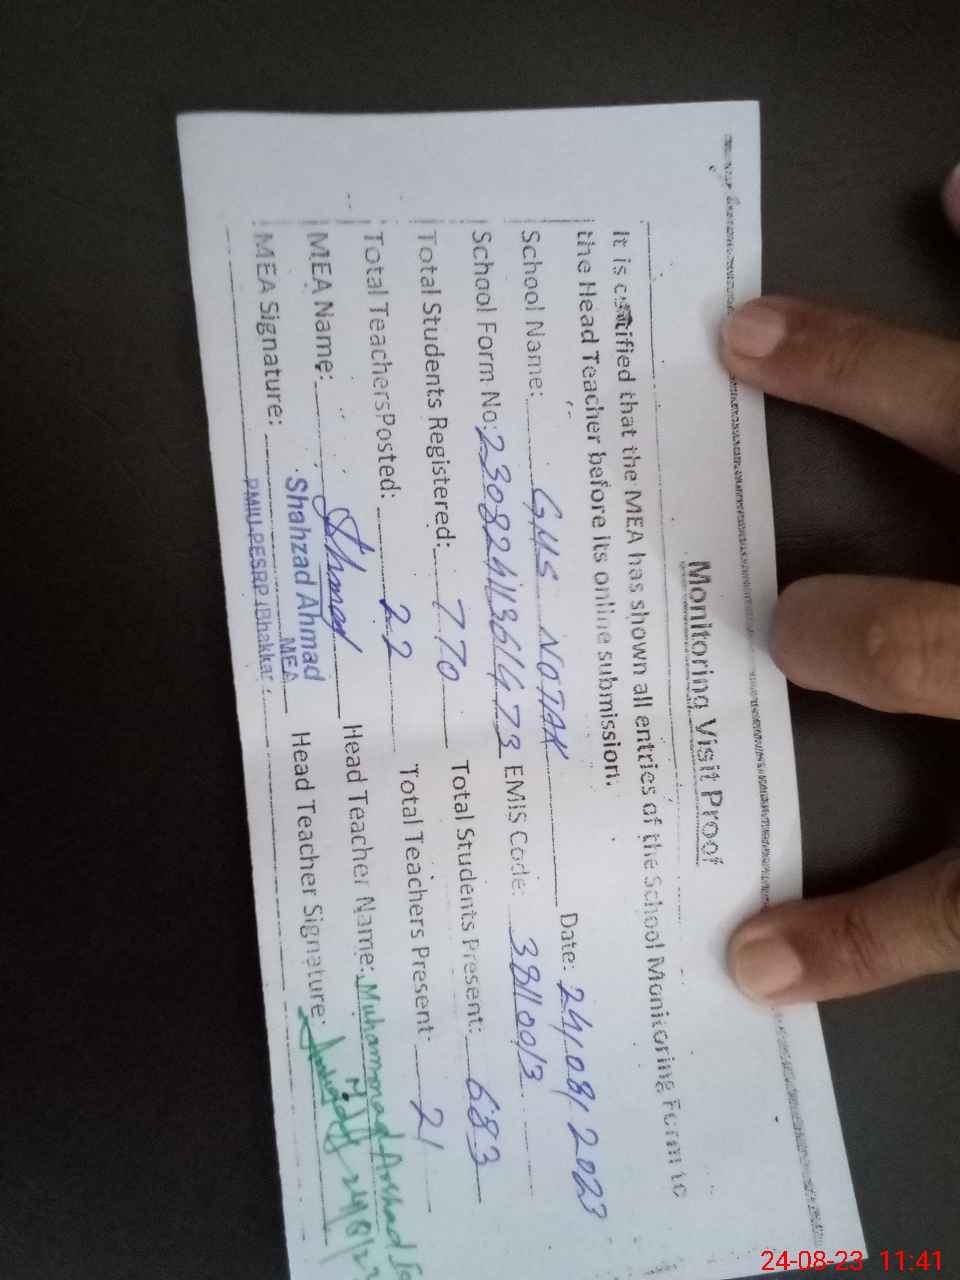 Monitoring Visit Proof
It is certified that the MEA has shown all entries of the School Monitoring Form to
the Head Teacher before its online submission.
School Name: GHS NOTAK Date: 24/08/2023
School Form No: 23082411361473 EMIS Code: 38110013
Total Students Registered: 770 Total Students Present: 683
Total TeachersPosted: 22 Total Teachers Present 21
MEA Name: Ahmad Head Teacher Name: Muhammad Arshad
MEA Signature: Shahzad Ahmad Head Teacher Signature:
MEA
PMIU-PESRP (Bhakkar)
24-08-23 11:41